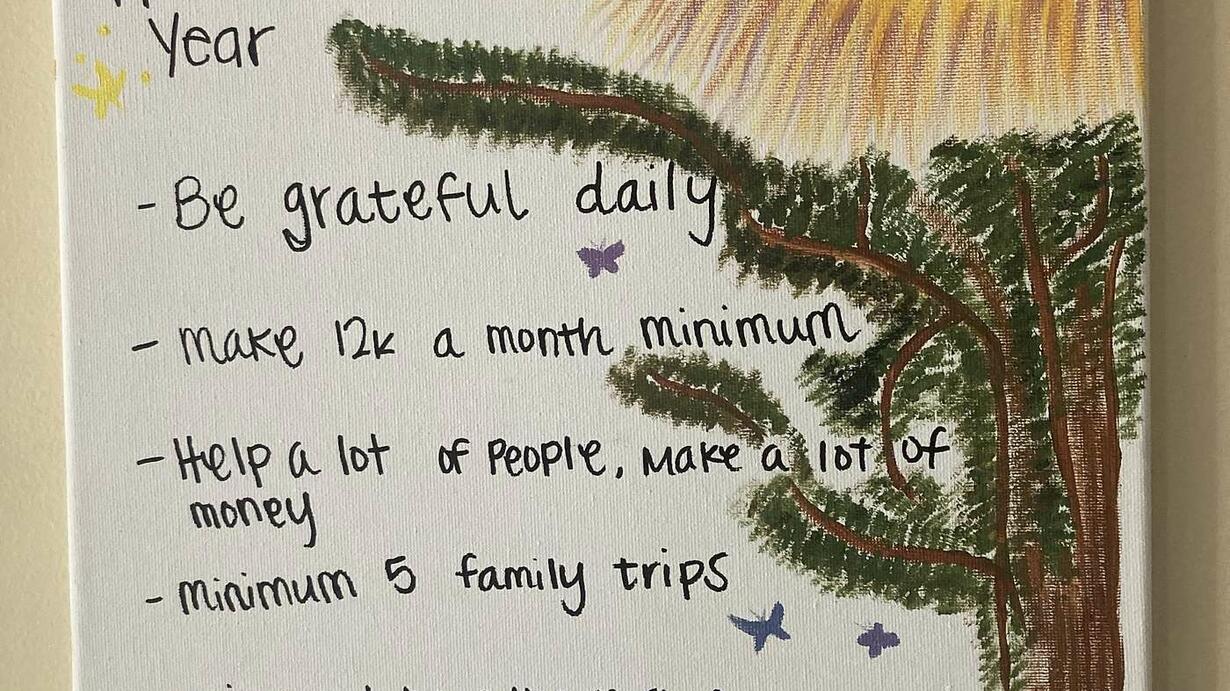 Year
- Be grateful daily
- Make 12k a month minimum
- Help a lot of People, Make a lot of
money
- minimum 5 family trips